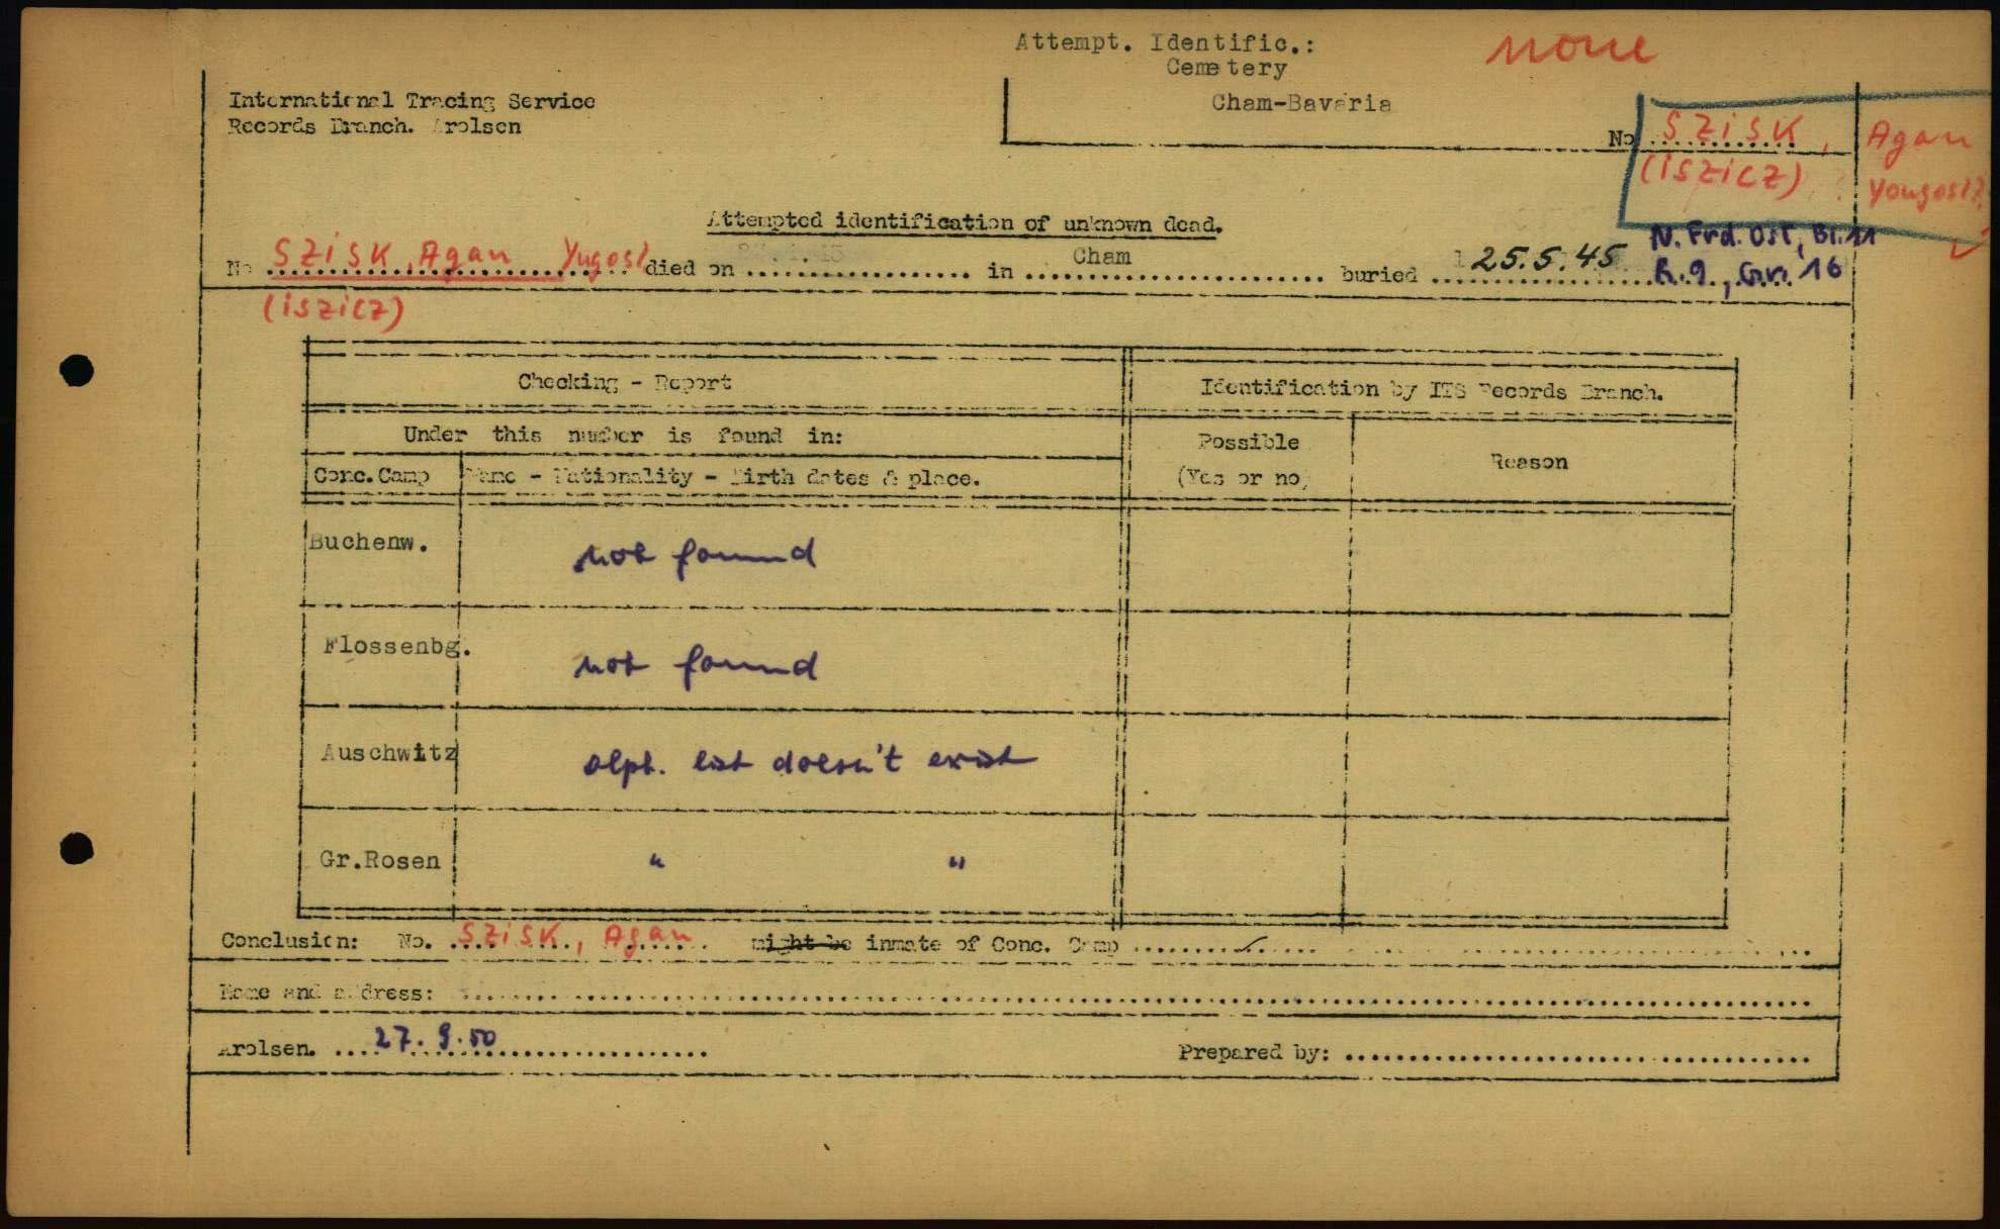 Attempt. Identific.:
none
Cemetery
Cham-Bavaria
International Tracing Service
Records Branch. Arolsen
No SZISK, Agan
(ISZICZ) ? Yougosl?
Attempted identification of unknown dead.
N. Frd. Ost, Bl. 11
No SZISK, Agan Yugosl died on in Cham buried 25.5.45 R.9, Gr. 16
(ISZICZ)
Checking - Report
Identification by ITS Records Branch.
Under this number is found in:
Possible
(Yes or no)
Reason
Conc.Camp
Name - Nationality - Birth dates & place.
Buchenw. not found
Flossenbg. not found
Auschwitz alph. list doesn't exist
Gr.Rosen " "
Conclusion: No. SZISK, Agan might be inmate of Conc. Camp
Name and address:
Arolsen. 27.9.50
Prepared by: